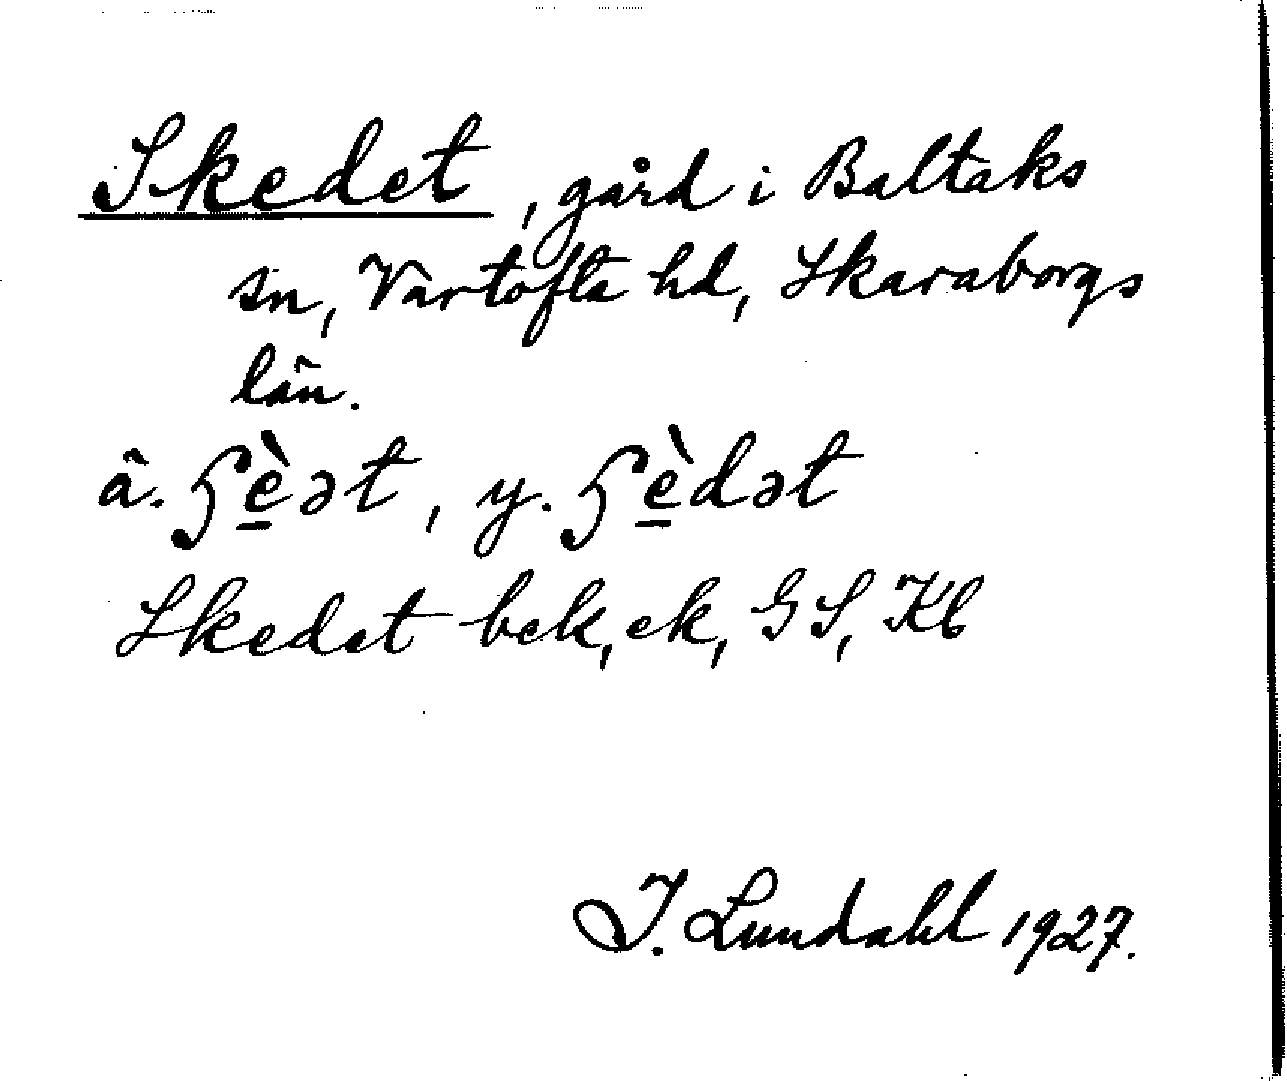 Skedet, gård i Baltaks
sn, Vartofta hd, Skaraborgs
län.
ä. ʂè̱ət, y. ʂè̱dət
Skedet bek, ek, GS, Kb
I. Lundahl 1927.